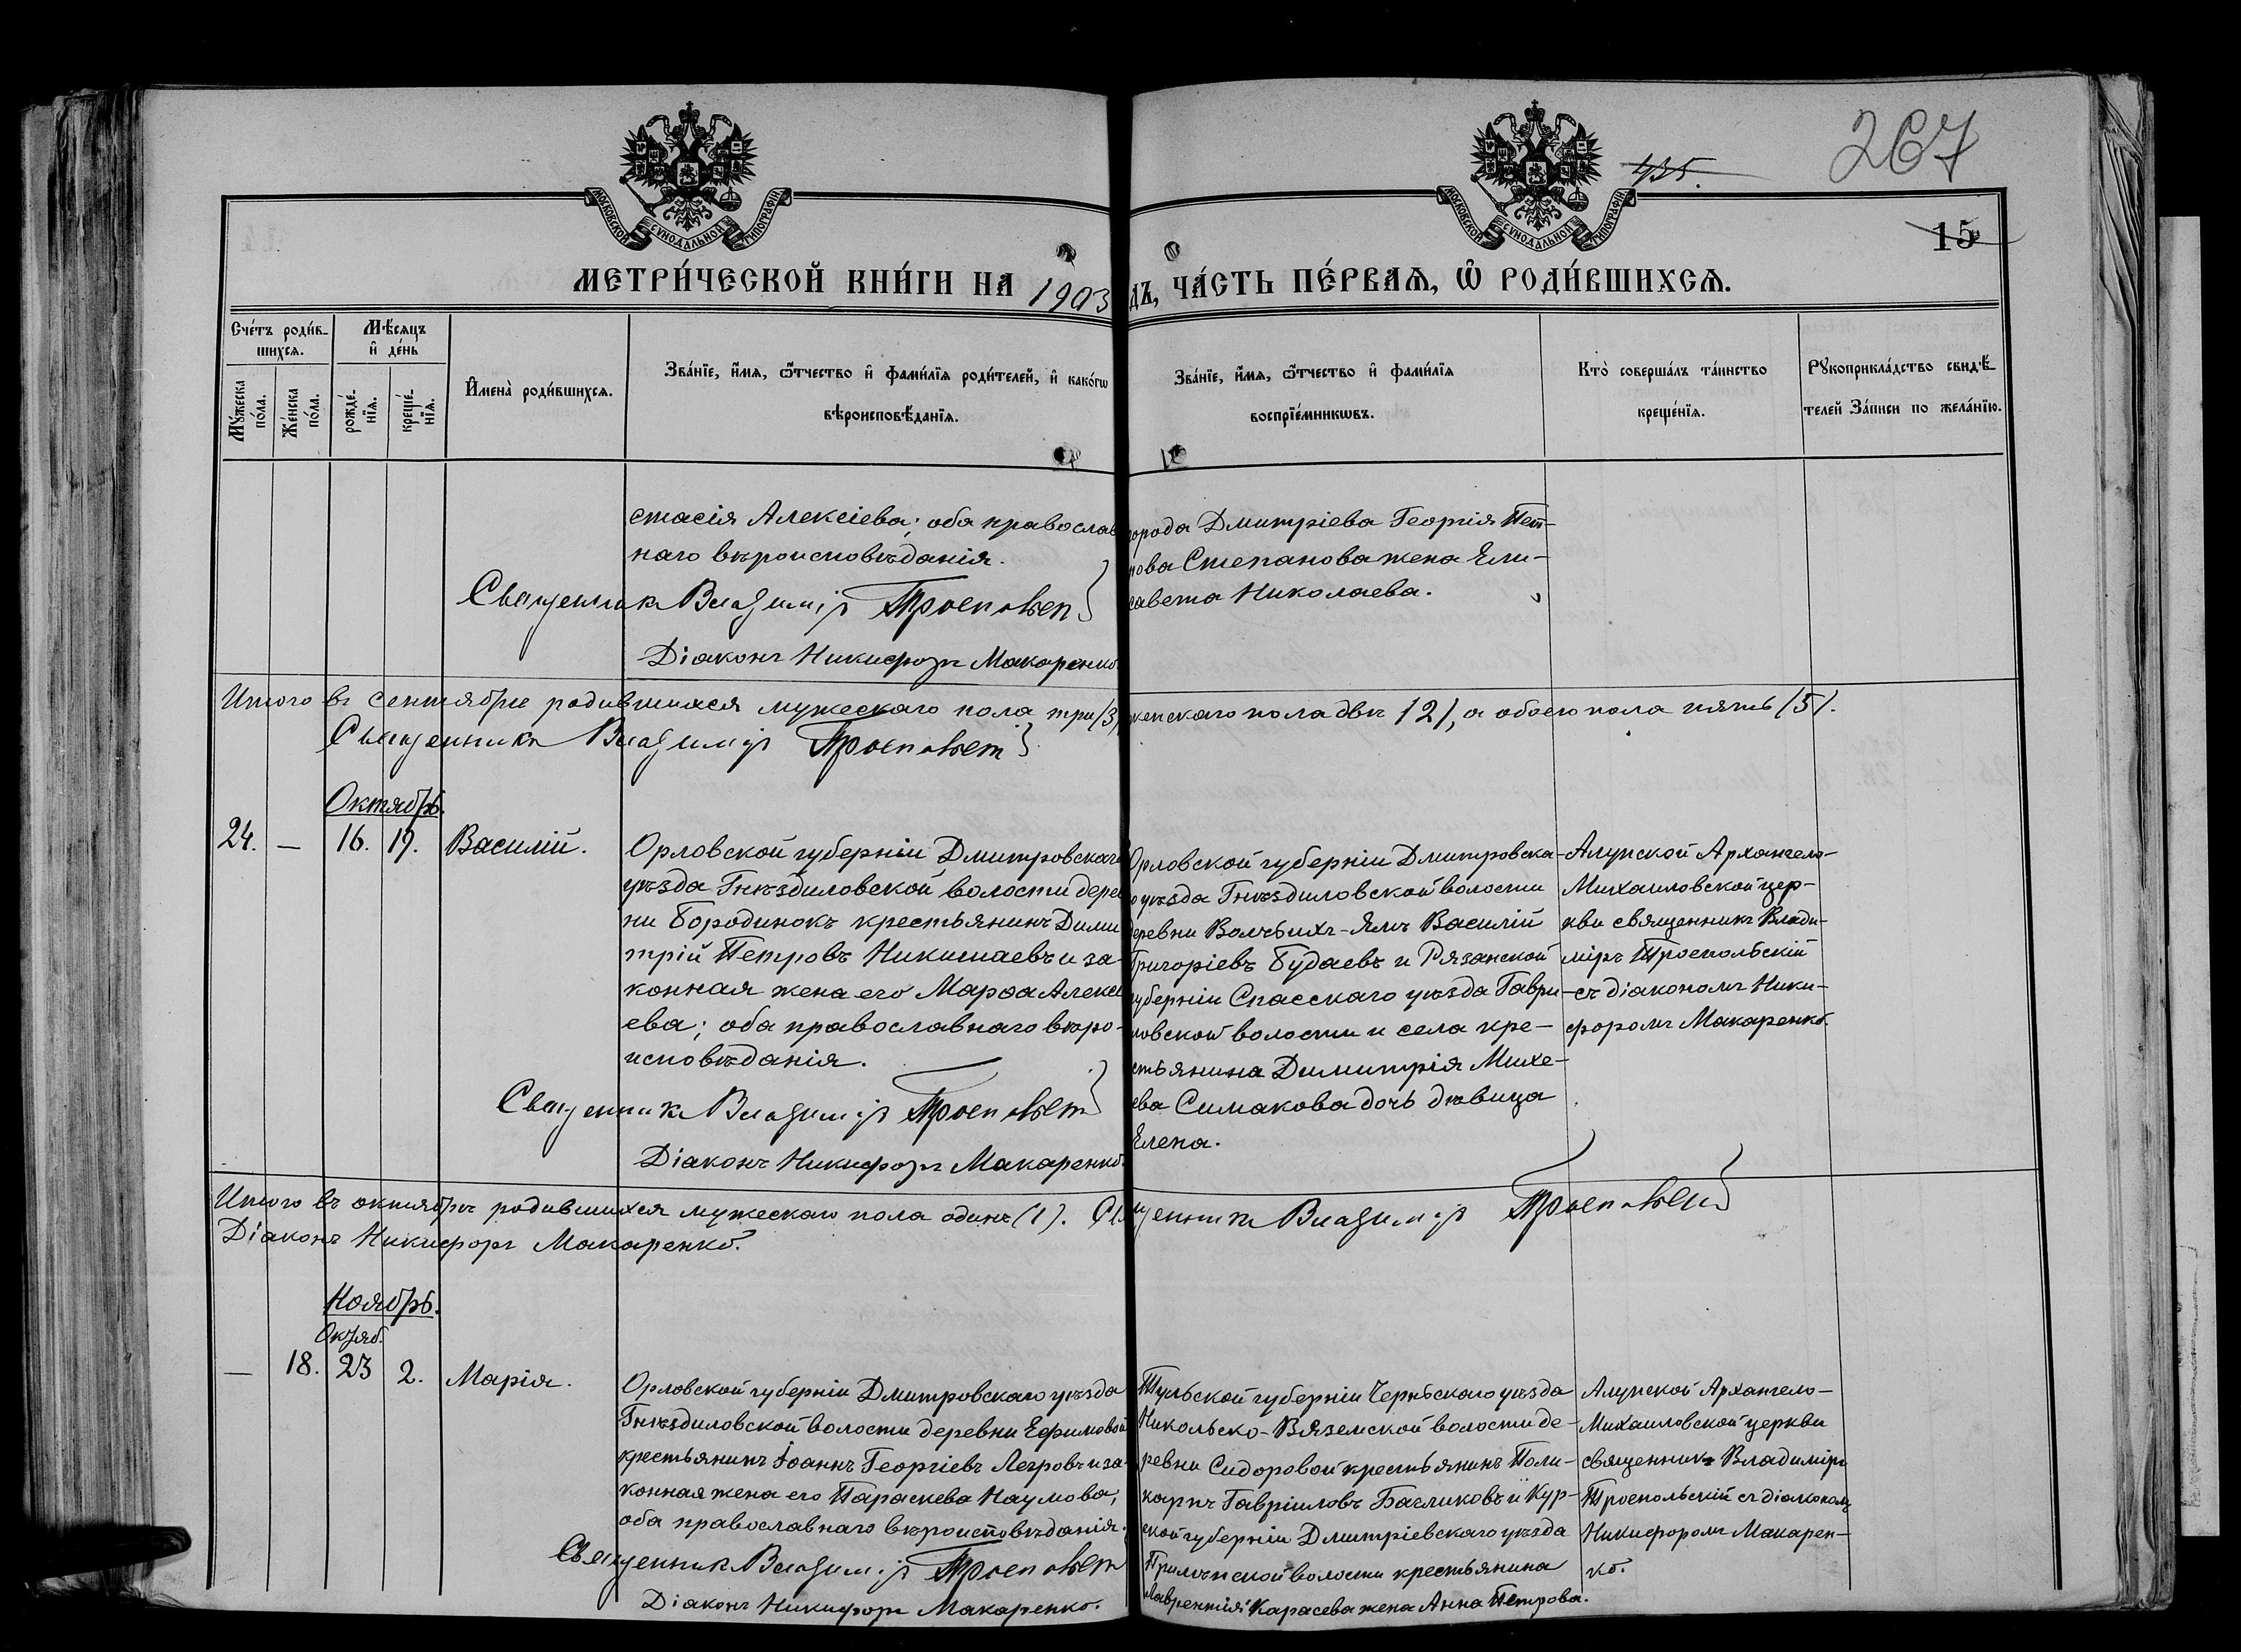 267
435.
15
МОСКОВСКОЙ СѴНОДАЛЬНОЙ ТИПОГРАФІИ
МОСКОВСКОЙ СѴНОДАЛЬНОЙ ТИПОГРАФІИ
МЕТРИ́ЧЕСКОЙ КНИ́ГИ НА 1903 ДЪ, ЧА́СТЬ ПЕ́РВАѦ, Ѡ҆ РОДИ́ВШИХСѦ.
Сче́тъ роди́в-
шихсѧ.
Мꙋ́жеска по́ла.
Же́нска по́ла.
Мѣ́сѧцъ
и҆ де́нь
рожде́-
нїѧ.
креще́-
нїѧ.
И҆мена̀ роди́вшихсѧ.
Зва́нїе, и҆́мѧ, ѻ҆́тчество и҆ фами́лїѧ роди́телей, и҆ како́гѡ
вѣроисповѣ́данїѧ.
Зва́нїе, и҆́мѧ, ѻ҆́тчество и҆ фами́лїѧ
воспрїе́мникѡвъ.
Кто̀ соверша́лъ та́инство
креще́нїѧ.
Рꙋкоприкла́дство свидѣ́-
телей За́писи по жела́нїю.
стасія Алексіева; оба православ
наго вѣроисповѣданія.
Священникъ Владиміръ Троепольскій
Діаконъ Никифоръ Макаренко
города Дмитріева Георгія Пет-
нова Степанова жена Ели-
савета Николаева.
Итого въ сентябрѣ родившихся мужескаго пола три (3) женскаго пола двѣ (2), а обоего пола пять (5).
Священникъ Владиміръ Троепольскій
Октябрь.
24. — 16. 19. Василій.
Орловской губерніи Дмитровскаго
уѣзда Гнѣздиловской волости дерев
ни Бородинокъ крестьянинъ Дими
трій Петровъ Никишаевъ и за-
конная жена его Марѳа Алексі
ева; оба православнаго вѣро-
исповѣданія.
Священникъ Владиміръ Троепольскій
Діаконъ Никифоръ Макаренко.
Орловской губерніи Дмитровска-
го уѣзда Гнѣздиловской волости
деревни Волчьихъ-Ямъ Василій
Григоріевъ Будаевъ и Рязанской
губерніи Спасскаго уѣзда Гаври-
ловской волости и села кре-
стьянина Димитрія Михе-
ева Симакова дочь дѣвица
Елена.
Алупской Архангело-
Михаиловской цер-
кви священникъ Влади-
міръ Троепольскій
съ діакономъ Ники-
форомъ Макаренко.
Итого въ октябрѣ родившихся мужескаго пола одинъ (1). Священникъ Владиміръ Троепольскій
Діаконъ Никифоръ Макаренко.
Ноябрь.
Октяб.
— 18. 23 2. Марія.
Орловской губерніи Дмитровскаго уѣзда
Гнѣздиловской волости деревни Ефимовой
крестьянинъ Іоаннъ Георгіевъ Легровъ и за-
конная жена его Параскева Наумова,
оба православнаго вѣроисповѣданія.
Священникъ Владиміръ Троепольскій
Діаконъ Никифоръ Макаренко.
Тульской губерніи Чернскаго уѣзда
Никольско-Вяземской волости де-
ревни Сидоровой крестьянинъ Поли-
карпъ Гавріиловъ Багликовъ и Кур-
ской губерніи Дмитріевскаго уѣзда
волости крестьянина
Лаврентія Карасева жена Анна Петрова.
Алупской Архангело-
Михаиловской церкви
священникъ Владиміръ
Троепольскій съ діакономъ
Никифоромъ Макарен-
ко.